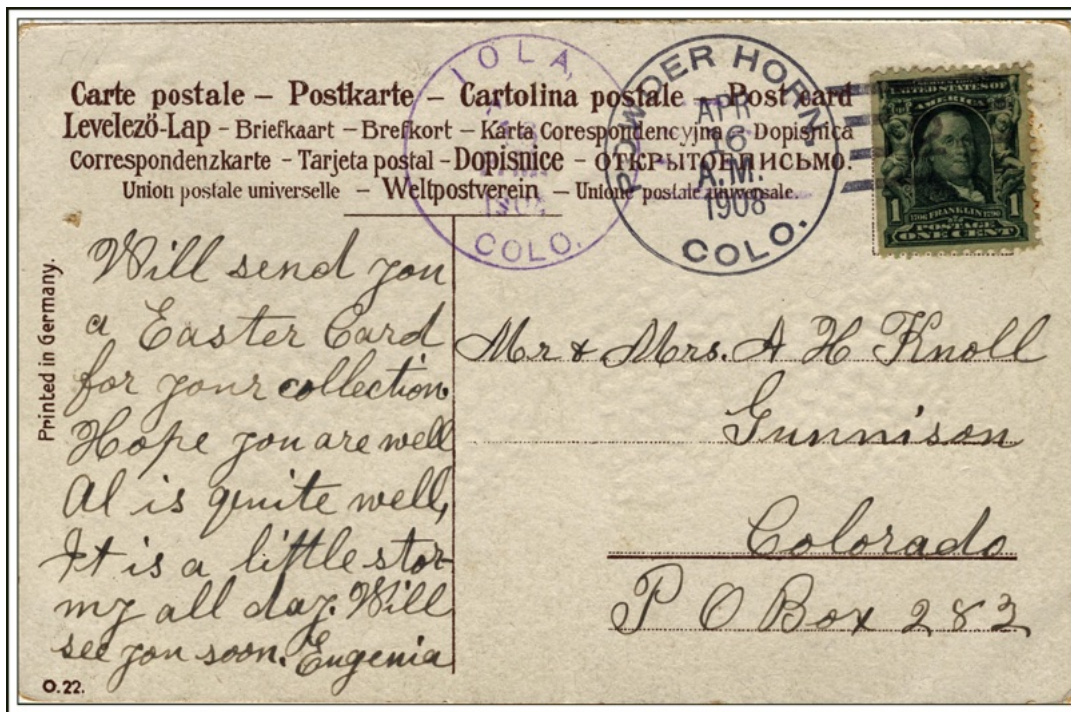 Carte postale – Postkarte – Cartolina postale – Post card
Levelezö-Lap – Briefkaart – Brefkort – Karta Corespondencyjna – Dopisnica
Correspondenzkarte – Tarjeta postal – Dopisnice – ОТКРЫТОЕ ПИСЬМО.
Union postale universelle – Weltpostverein – Unione postale universale.
IOLA,
COLO.
POWDER HORN,
APR
16
A.M.
1908
COLO.
UNITED STATES OF
AMERICA
1
1706 FRANKLIN 1790
1
POSTAGE
ONE CENT
Printed in Germany.
Will send you
a Easter Card
for your collection.
Hope you are well
Al is quite well,
It is a little stor-
my all day. Will
see you soon. Eugenia
Mr & Mrs. A H Knoll
Gunnison
Colorado
P O Box 282
O.22.